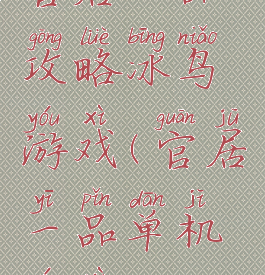 gōng lüè bīng niǎo
攻略冰鸟
yóu xì guān jū
游戏(官居
yī pǐn dān jī
一品单机